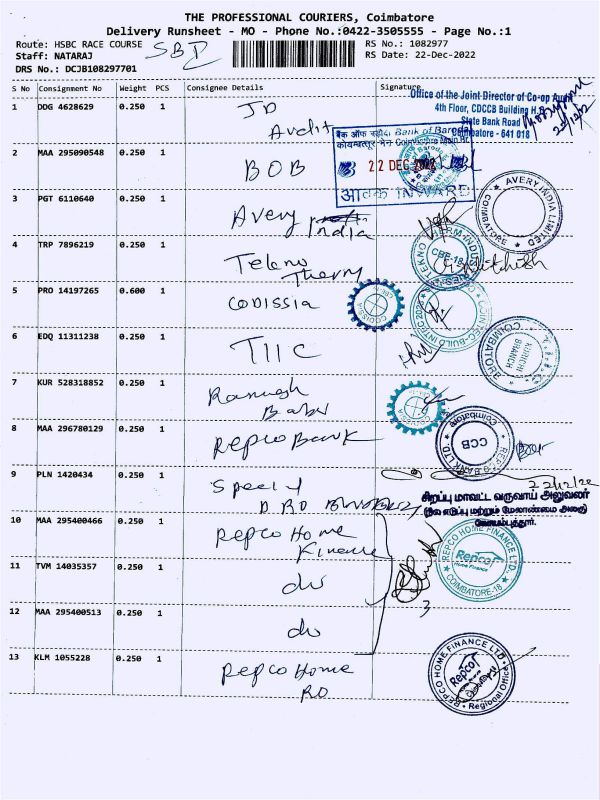 THE PROFESSIONAL COURIERS, Coimbatore
Delivery Runsheet - MO - Phone No.:0422-3505555 - Page No.:1
Route: HSBC RACE COURSE
RS No.: 1082977
Staff: NATARAJ
RS Date: 22-Dec-2022
DRS No.: DCJB108297701
S No Consignment No Weight PCS Consignee Details Signature
Office of the Joint Director of Co-op Audit
4th Floor, CDCCB Building
State Bank Road
Coimbatore - 641 018
1 DDG 4628629 0.250 1 JD
Audit
बैंक ऑफ़ बड़ौदा Bank of Baroda
22 DEC 2022
आवक INWARD
2 MAA 295090548 0.250 1 BOB
3 PGT 6110640 0.250 1 Avery
India
AVERY INDIA LIMITED
COIMBATORE
4 TRP 7896219 0.250 1 Tekno
Therm
CBE-18
5 PRO 14197265 0.600 1 CODISSIA
6 EDQ 11311238 0.250 1 TIIC
KURICHI
BRANCH
COIMBATORE
7 KUR 528318852 0.250 1
Babu
8 MAA 296780129 0.250 1 Repco Bank
REPCO BANK LTD
Coimbatore
CCB
9 PLN 1420434 0.250 1 Special
DRO
22/12/22
சிறப்பு மாவட்ட வருவாய் அலுவலர்
(நில எடுப்பு மற்றும் மேலாண்மை அலகு)
கோயம்புத்தூர்.
10 MAA 295400466 0.250 1 Repco Home
Finance
REPCO HOME FINANCE LTD.
Repco
Home Finance
COIMBATORE-18
11 TVM 14035357 0.250 1 do
3
12 MAA 295400513 0.250 1 do
13 KLM 1055228 0.250 1 Repco Home
RO
REPCO HOME FINANCE LTD
Repco
Regional Office